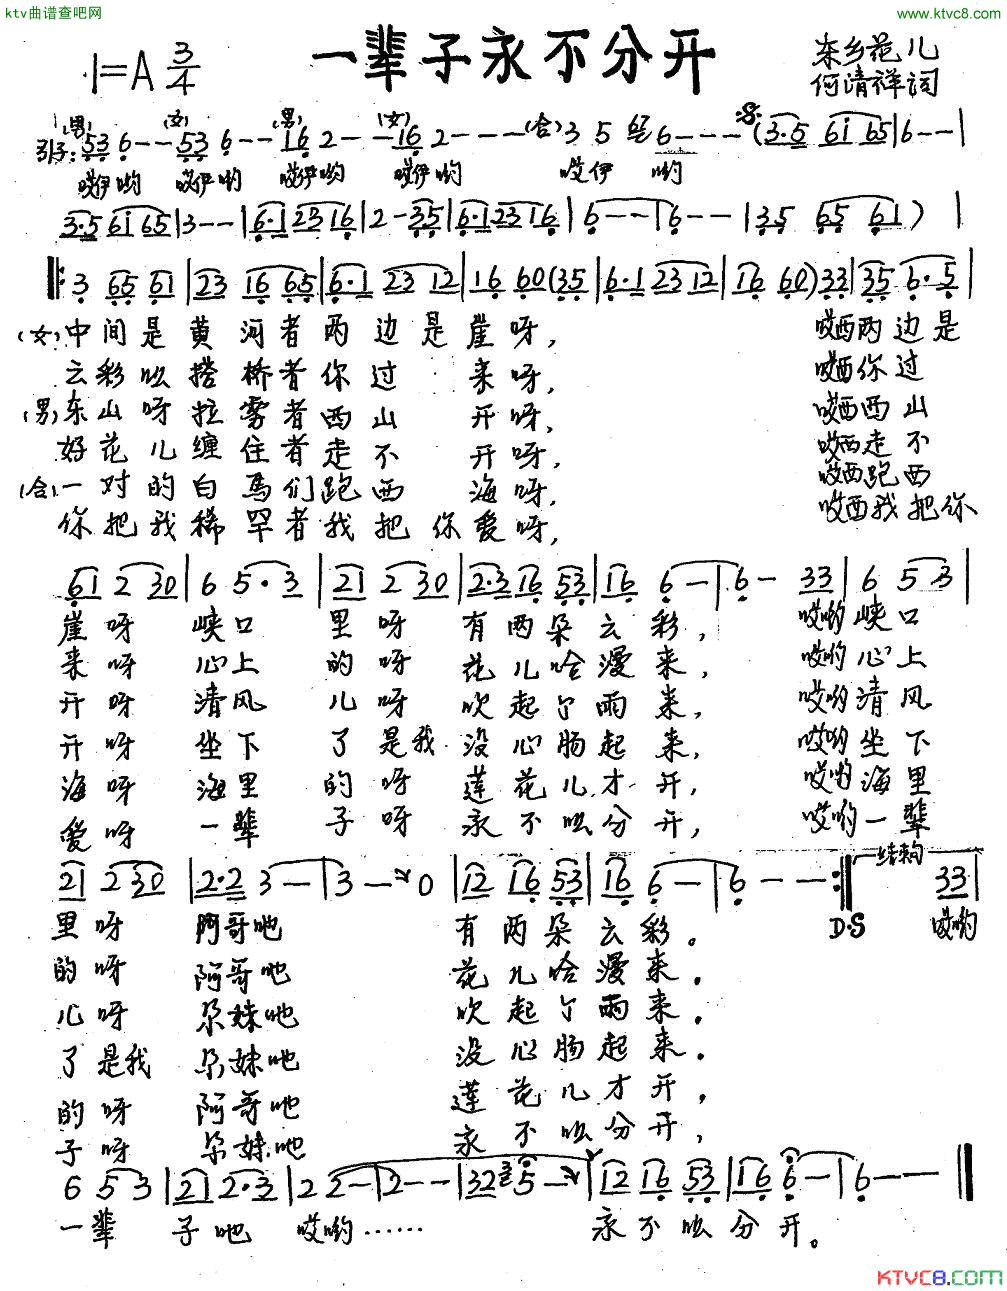 ktv曲谱查吧网
www.ktvc8.com
一辈子永不分开
1=A 3/4
东乡花儿
何清祥词
(男) (女) (男) (女)
引子: 53 6 - - 53 6 - - 16 2 - - 16 2 - - - (合) 3 5 6 - - - (3·5 61 65 | 6 - - |
哎伊哟 哎伊哟 哎伊哟 哎伊哟 哎伊 哟
3·5 61 65 | 3 - - | 6·1 23 16 | 2 - 35 | 6·1 23 16 | 6 - - | 6 - - | 35 65 61 ) |
3 65 61 | 23 16 65 | 6·1 23 12 | 16 60 (35 | 6·1 23 12 | 16 60) 33 | 35 6·5 |
(女) 中间是黄河者两边是崖呀, 哎西两边是
云彩呗搭桥者你过来呀, 哎西你过
(男) 东山呀拉雾者西山开呀, 哎西西山
好花儿缠住者走不开呀, 哎西走不
(合) 一对的白马们跑西海呀, 哎西跑西
你把我稀罕者我把你爱呀, 哎西我把你
61 2 30 | 6 5·3 | 21 2 30 | 2·3 16 53 | 16 6 - | 6 - 33 | 6 5 3 |
崖呀 峡口 里呀 有两朵云彩, 哎哟峡口
来呀 心上 的呀 花儿哈漫来, 哎哟心上
开呀 清风 儿呀 吹起个雨来, 哎哟清风
开呀 坐下 了是我 没心肠起来, 哎哟坐下
海呀 海里 的呀 莲花儿才开, 哎哟海里
爱呀 一辈 子呀 永不呗分开, 哎哟一辈
结束句
21 2 30 | 2·2 3 - | 3 - 0 | 12 16 53 | 16 6 - | 6 - - :| 33 |
D·S
里呀 阿哥吔 有两朵云彩。 哎哟
的呀 阿哥吔 花儿哈漫来。
儿呀 尕妹吔 吹起个雨来。
了是我 尕妹吔 没心肠起来。
的呀 阿哥吔 莲花儿才开,
子呀 尕妹吔 永不呗分开,
6 5 3 | 21 2·3 | 2 2 - | 2 - - | 32 3 5 - | 12 16 53 | 16 6 - | 6 - - ||
一辈 子吔 哎哟…… 永不呗分开。
KTVC8.COM